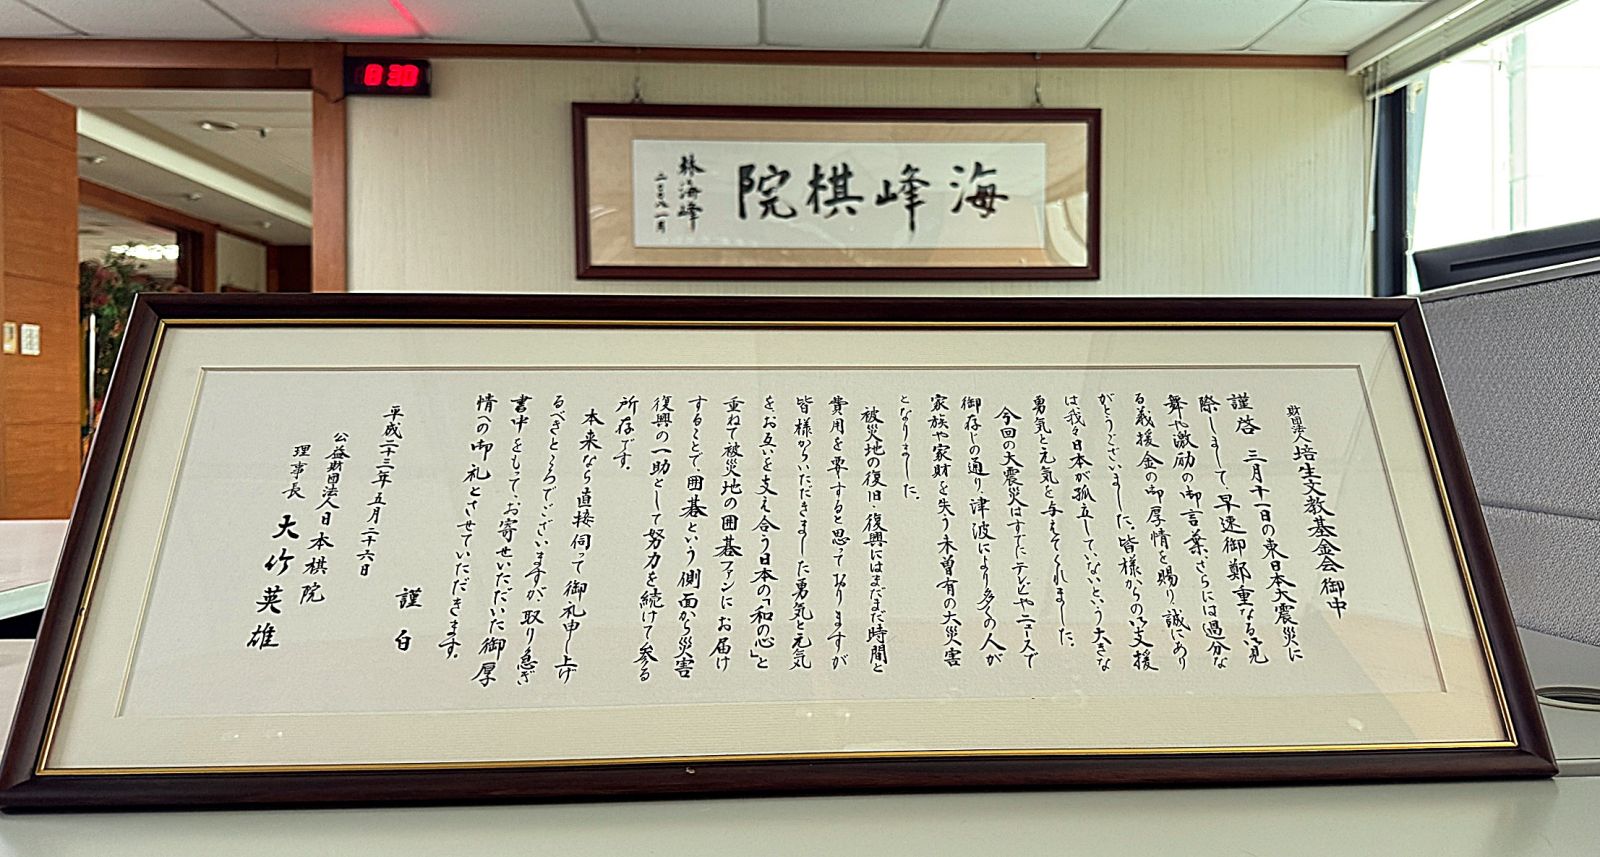 8 30
海峰棋院
林海峰
二〇〇八一月
財団法人培生文教基金会御中
謹啓 三月十一日の東日本大震災に
際しまして、早速御鄭重なる御見
舞や激励の御言葉、さらには過分な
る義援金の御厚情を賜り、誠にあり
がとうございました。皆様からの御支援
は我々日本が孤立していないという大きな
勇気と元気を与えてくれました。
今回の大震災はすでにテレビやニュースで
御存じの通り、津波により多くの人が
家族や家財を失う未曽有の大災害
となりました。
被災地の復旧・復興にはまだまだ時間と
費用を要すると思っておりますが
皆様からいただきました勇気と元気
を、お互いを支え合う日本の「和の心」と
重ねて被災地の囲碁ファンにお届け
することで、囲碁という側面から災害
復興の一助として努力を続けて参る
所存です。
本来なら直接伺って御礼申し上げ
るべきところでございますが、取り急ぎ
書中をもって、お寄せいただいた御厚
情への御礼とさせていただきます。
謹白
平成二十三年五月二十六日
公益財団法人日本棋院
理事長 大竹英雄